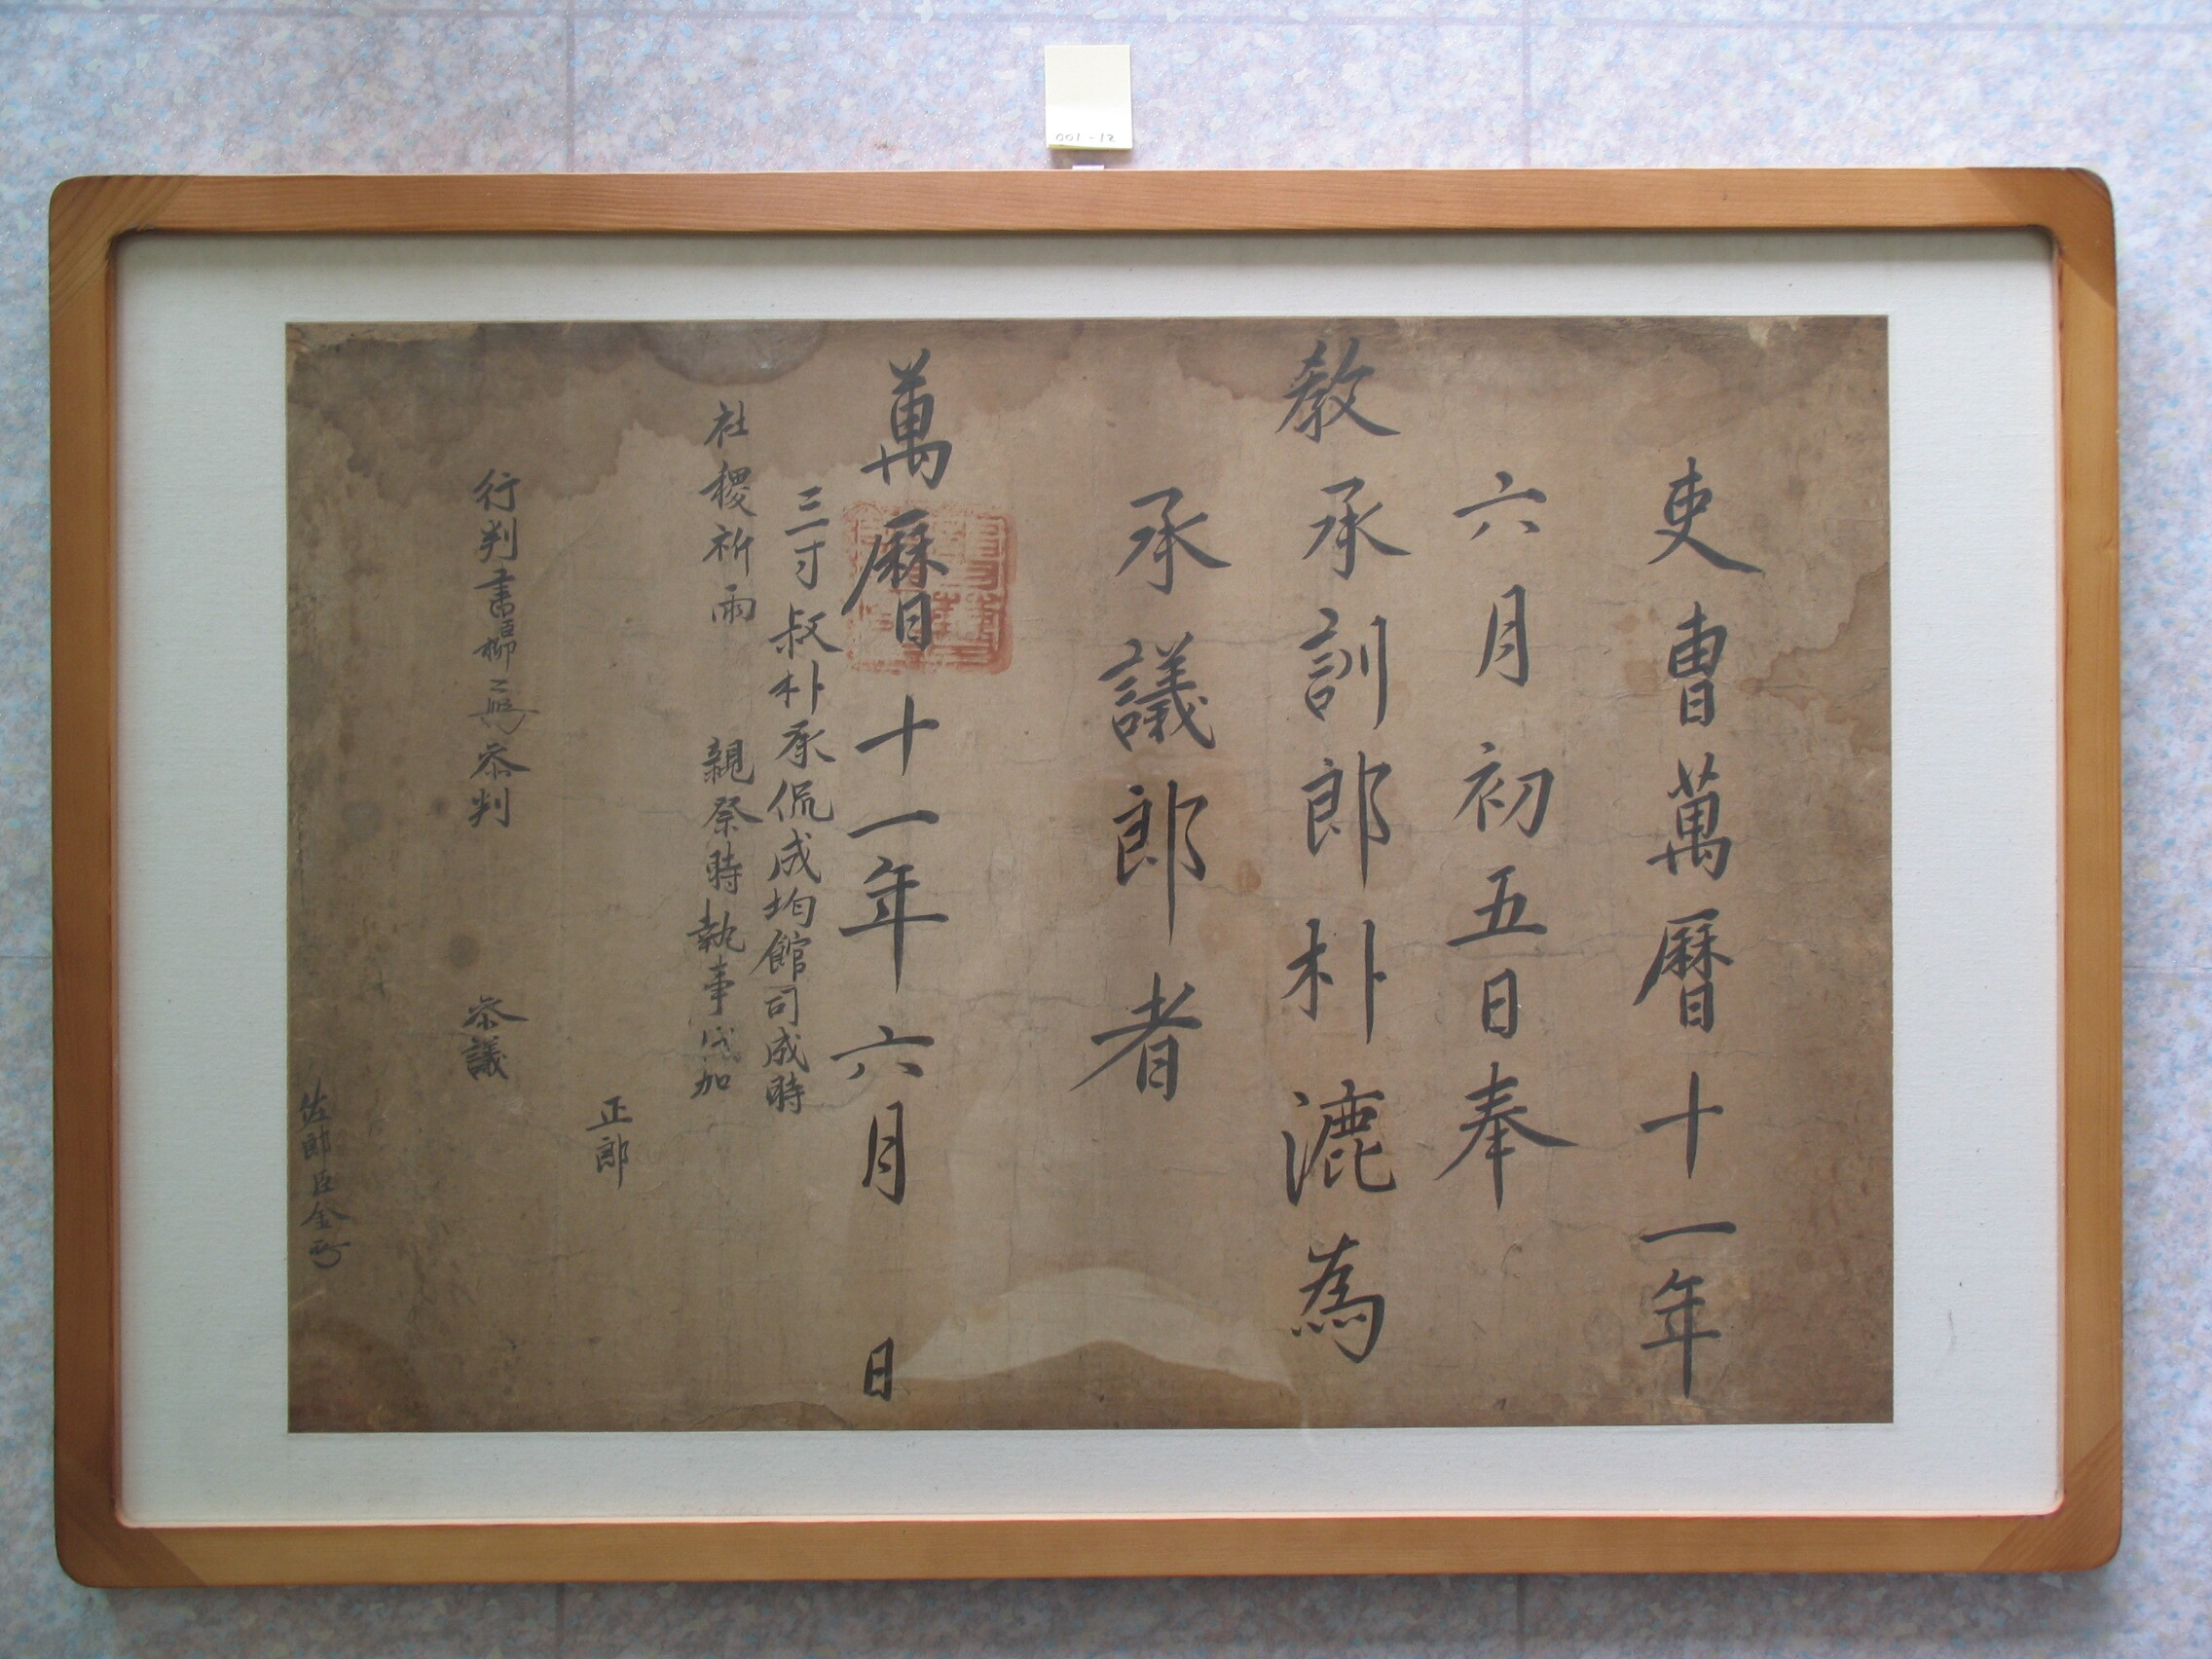 001-12
吏曺萬曆十一年
六月初五日奉
敎承訓郞朴漉為
承議郞者
萬曆十一年六月 日
三寸叔朴承侃成均館司成時
社稷祈雨 親祭時執事代加
正郞
行判書 参判 参議
佐郞臣金